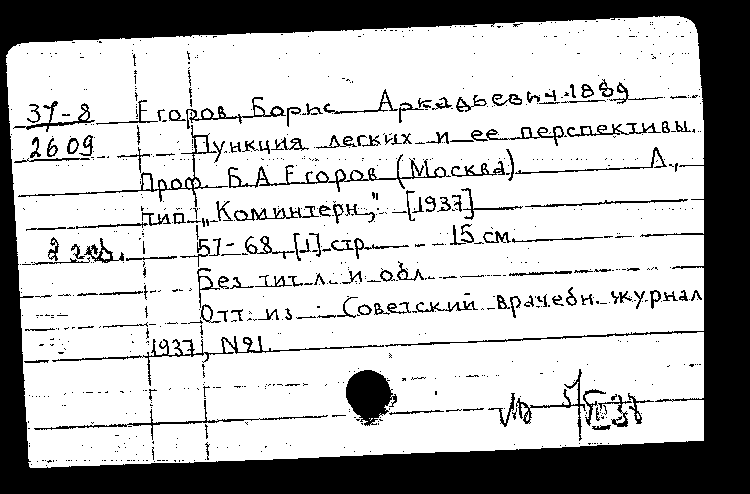 37-8 Егоров, Борис Аркадьевич. 1889
2609 Пункция легких и ее перспективы.
Проф. Б. А. Егоров (Москва). Л.,
тип. „Коминтерн", [1937]
2 экз. 57-68, [1] стр. 15 см.
Без тит. л. и обл.
Отт. из: Советский врачебн. журнал
1937, №1.
5/VIII 37